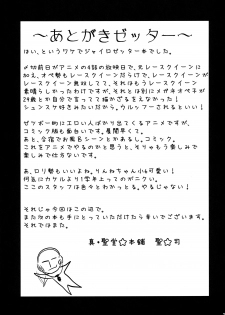 ～あとがきゼッター～
はい、というワケでジャイロゼッター本でした。
〆切前日がアニメの4話の放映日で、光レースクイーンに
加え、オペ勢もレースクイーンだらけで、でもレースクイーンが
レースクイーン無敵してて、それはもうレースクイーン
素晴らしかったわけですが、それとは別にメガネオペ子が
29歳とか自分を言ってて描かざるをえなかった!
シュンスケ方式したら、ウルッフーされるといい!
ゼツボー的にエロい人ばかり出てくるアニメですが、
コミック版も面白いです。展開早くて。
あと、全宿でお風呂シーンとかあるし。コミック。
これをアニメでやるのかと思うと、そりゃもう楽しみで
楽しみで仕方ないです。
あ、ロリ勢もいいよね。りんねちゃん小6かわいい!
何気にカケルより1学年上ってのがニクい。
ここのスタッフは色々とわかっとる。やるじゃない!
それじゃ今回はこの辺で。
また次の本も手にとっていただけたら幸いでございます。
それではまた。
真・聖堂☆本舗　聖☆司